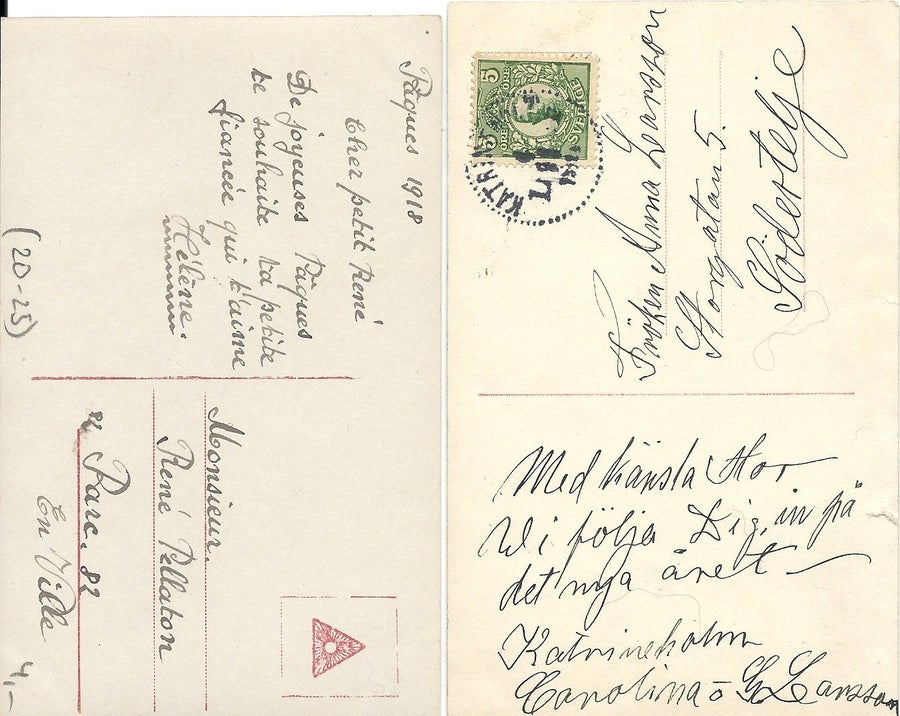 Pâques 1918
Cher petit René
De joyeuses Pâques
te souhaite ta petite
fiancée qui t'aime
Hélène.
(20-25)
Monsieur.
René Pellaton
Parc. 82
En Ville
4,-
5 5
SVERIGE
KATRINE
Fröken Anna Larsson
Storgatan 5.
Södertelje
Med känsla Stor
Wi följa Dig, in på
det nya året
Katrineholm
Carolina o G Larsson